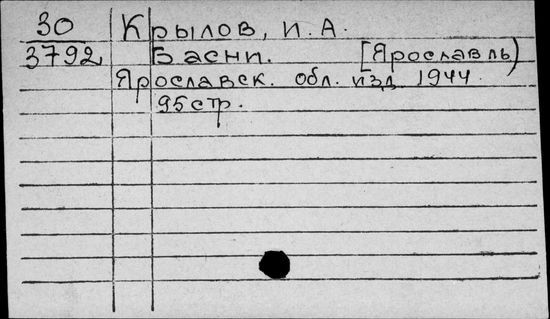 30 Крылов, И. А.
3792 Басни. [Ярославль)
Ярославск. обл. изд. 1944.
95стр.